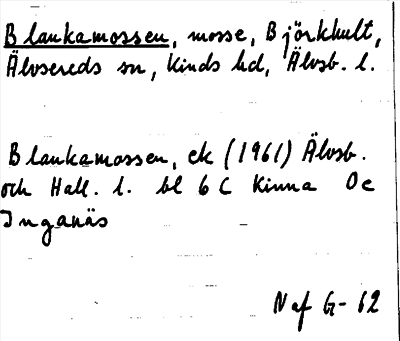 Blankamossen, mosse, Björkhult,
Älvsereds sn, Kinds hd, Älvsb. l.
Blankamossen, ek (1961) Älvsb.
och Hall. l. bl 6 C Kinna Oc
Inganäs
Naf G-62